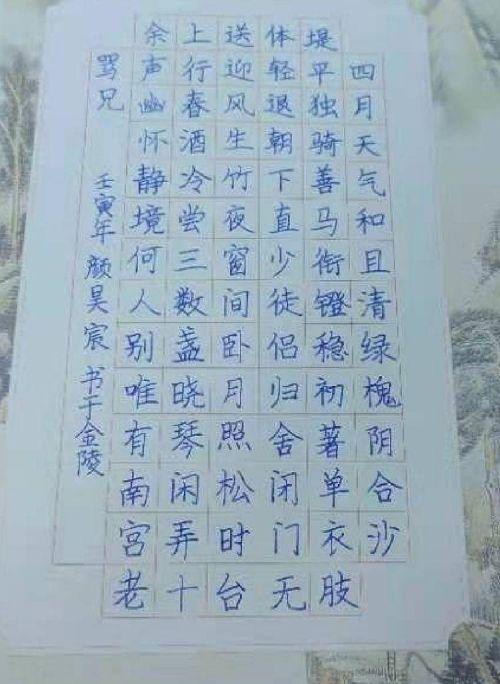 四月天气和且清绿槐阴合沙
堤平独骑善马衔镫稳初著单衣肢
体轻退朝下直少徒侣归舍闭门无
送迎风生竹夜窗间卧月照松时台
上行春酒冷尝三数盏晓琴闲弄十
余声幽怀静境何人别唯有南宫老
骂兄 壬寅年颜昊宸书于金陵